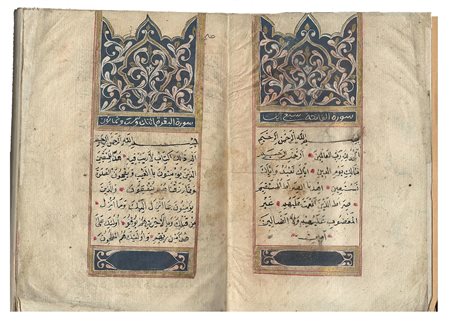 سورة الفاتحة سبع آيات
بسم الله الرحمن الرحيم
الحمد لله رب العالمين الرحمن الرحيم
مالك يوم الدين اياك نعبد واياك
نستعين اهدنا الصراط المستقيم
صراط الذين انعمت عليهم غير
المغضوب عليهم ولا الضالين
آمين
سورة البقرة
بسم الله الرحمن الرحيم
الم ذلك الكتاب لا ريب فيه هدى للمتقين
الذين يؤمنون بالغيب ويقيمون الصلوة
ومما رزقناهم ينفقون والذين
يؤمنون بما انزل اليك وما انزل
من قبلك وبالاخرة هم يوقنون اولئك على
هدى من ربهم واولئك هم المفلحون